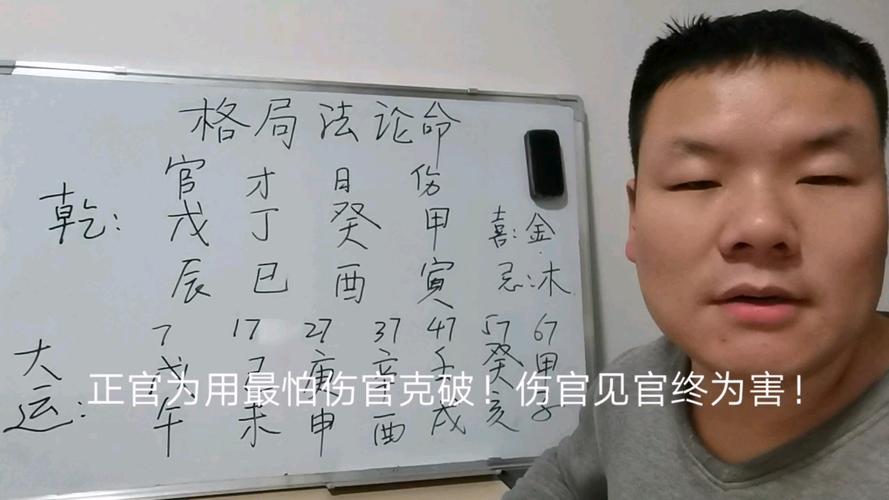 格局法论命
官 才 日 伤
乾: 戊 丁 癸 甲 喜:金
辰 巳 酉 寅 忌:木
7 17 27 37 47 57 67
大 戊 己 庚 辛 壬 癸 甲
运: 午 未 申 酉 戌 亥 子
正官为用最怕伤官克破！伤官见官终为害！